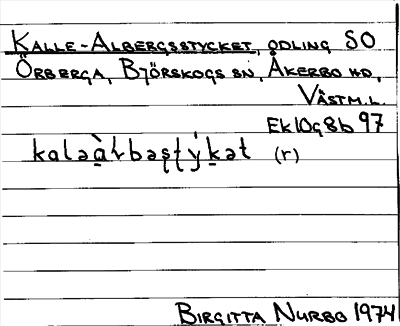 KALLE-ALBERGSSTYCKET, ODLING SO
ÖRBERGA, BJÖRSKOGS SN, ÅKERBO HD,
VÄSTM.L.
EK 10g8b 97
kaləàɫbəʂʈýkət (r)
BIRGITTA NURBO 1974